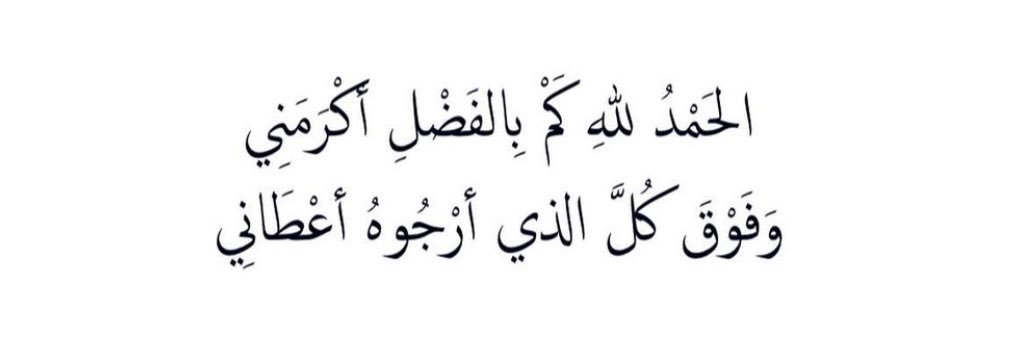 الحَمْدُ للهِ كَمْ بِالفَضْلِ أَكْرَمَنِي
وَفَوْقَ كُلَّ الذي أرْجُوهُ أعْطَانِي